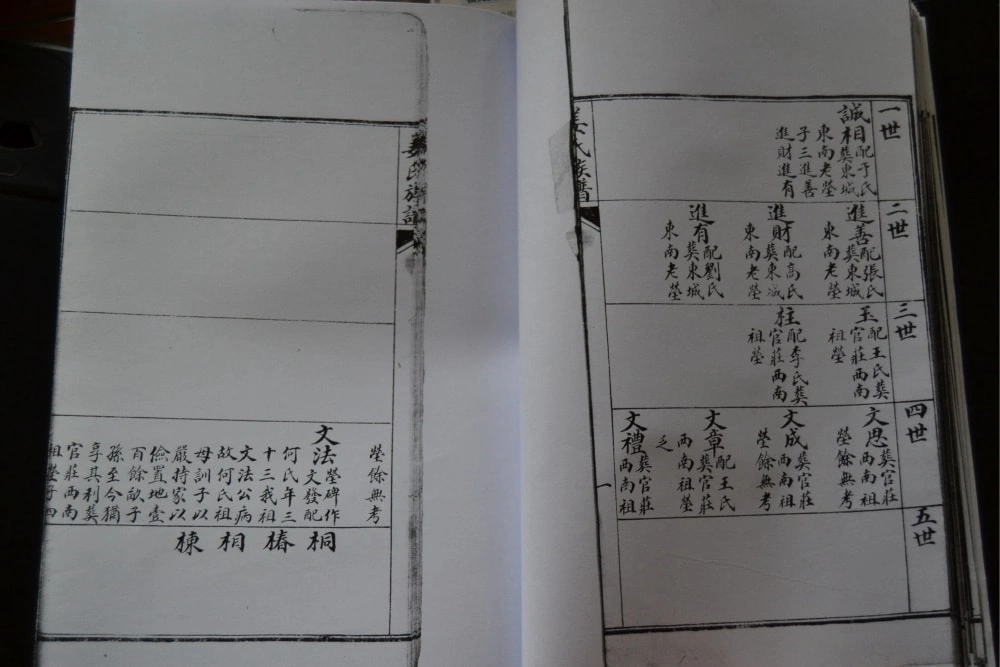 姜氏族譜
一世
誠相配于氏
葬東城
東南老塋
子三進善
進財進有
二世
進善配張氏
葬東城
東南老塋
進財配高氏
葬東城
東南老塋
進有配劉氏
葬東城
東南老塋
三世
玉配王氏葬
官莊西南
祖塋
柱配李氏葬
官莊西南
祖塋
四世
文思葬官莊
西南祖
塋餘無考
文成葬官莊
西南祖
塋餘無考
文章配王氏
葬官莊
西南祖塋
乏
文禮葬官莊
西南祖
五世
一
姜氏族譜
塋餘無考
文法塋碑作
文發配
何氏年三
十三我祖
文法公病
故何氏祖
母訓子以
嚴持家以
儉置地壹
百餘畝子
孫至今猶
享其利葬
官莊西南
祖塋子四
桐
椿
相
棟